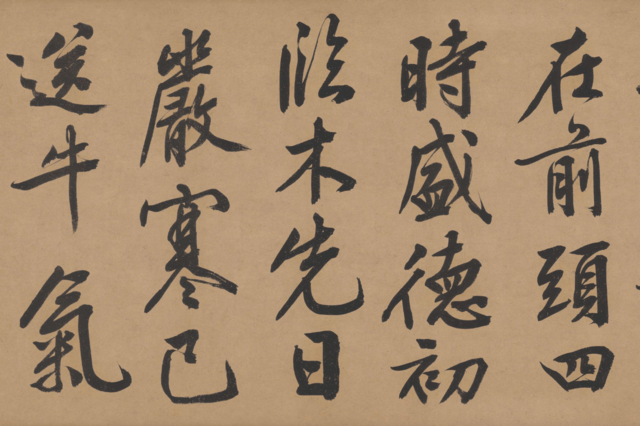 在前頭四
時盛德初
臨木先日
嚴寒已
送牛氣